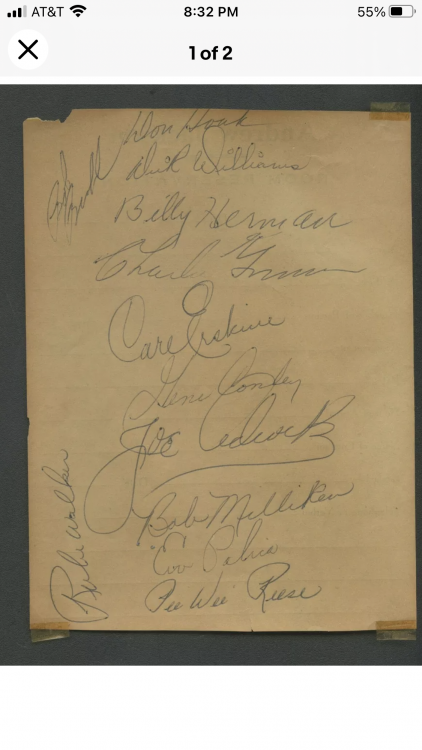 AT&T 8:32 PM 55%
1 of 2
Don Hoak
Dick Williams
Billy Herman
Carl Erskine
Gene Conley
Joe Adcock
Bob Milliken
Pee Wee Reese
Rube Walker